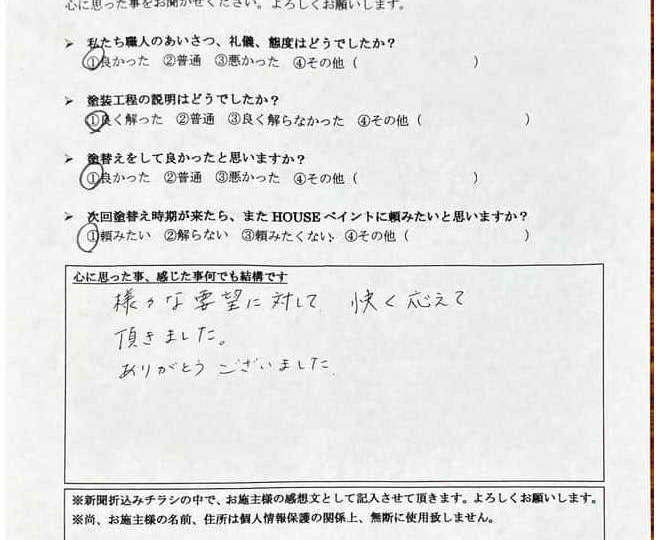 心に思った事をお聞かせください。よろしくお願いします。
➢ 私たち職人のあいさつ、礼儀、態度はどうでしたか？
①良かった ②普通 ③悪かった ④その他（ ）
➢ 塗装工程の説明はどうでしたか？
①良く解った ②普通 ③良く解らなかった ④その他（ ）
➢ 塗替えをして良かったと思いますか？
①良かった ②普通 ③悪かった ④その他（ ）
➢ 次回塗替え時期が来たら、また HOUSE ペイントに頼みたいと思いますか？
①頼みたい ②解らない ③頼みたくない ④その他（ ）
心に思った事、感じた事何でも結構です
様々な要望に対して 快く応えて
頂きました。
ありがとうございました
※新聞折込みチラシの中で、お施主様の感想文として記入させて頂きます。よろしくお願いします。
※尚、お施主様の名前、住所は個人情報保護の関係上、無断に使用致しません。